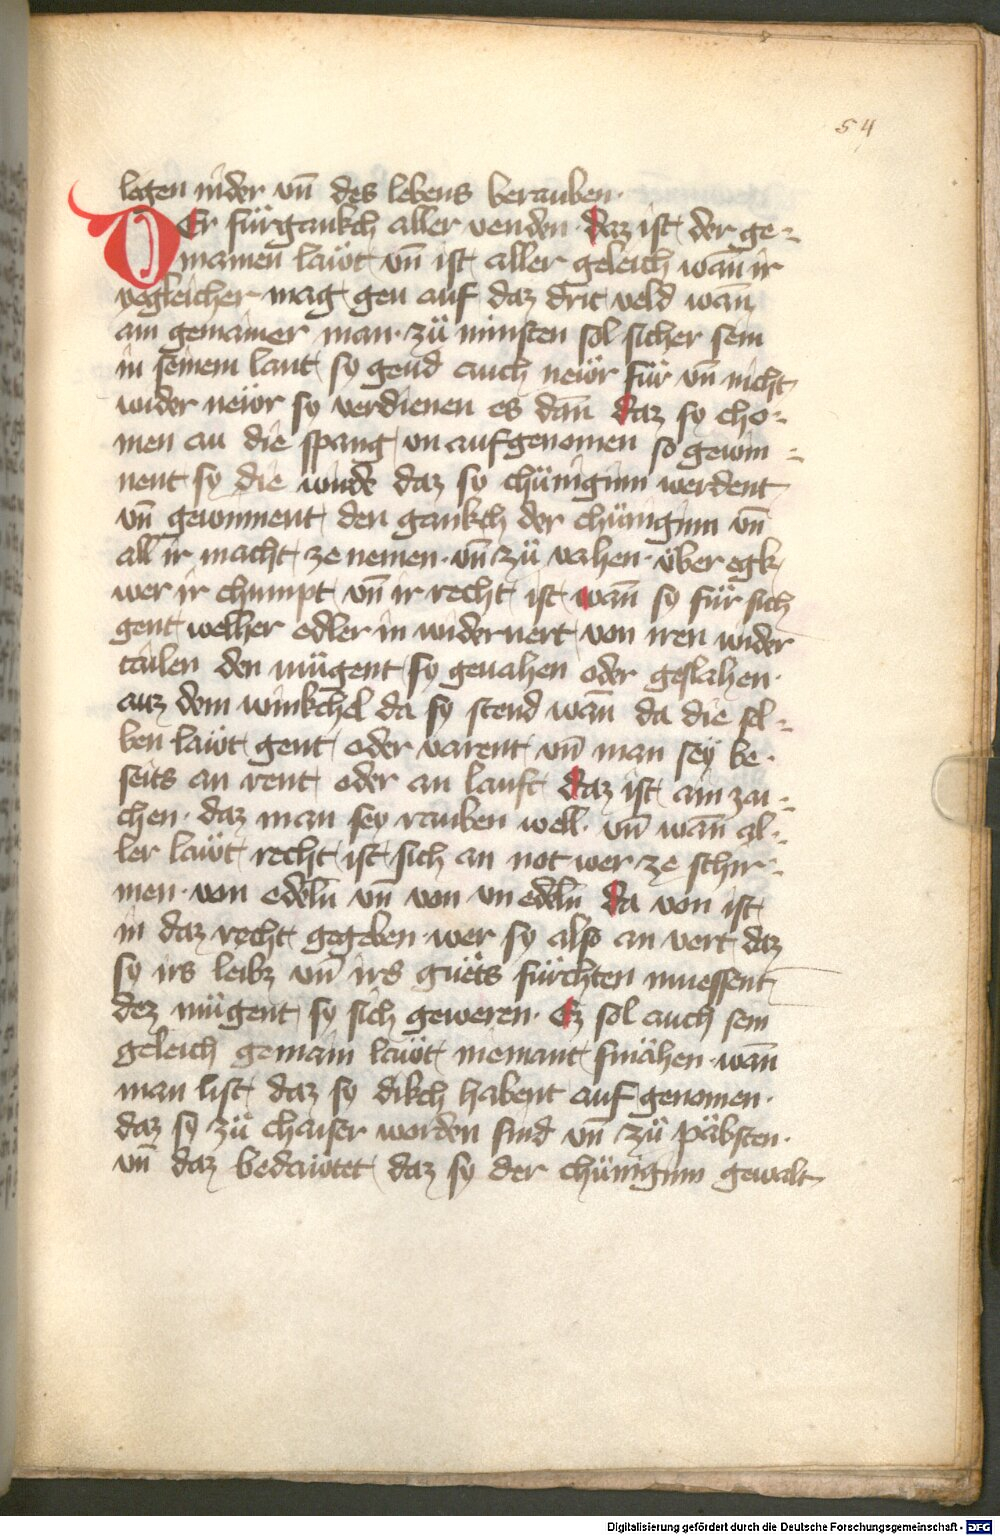 54
legen nider vn̄ des lebens berauben·
DEr fürgankch aller venden· daz ist der ge-
mainen läwt vn̄ ist aller geleich wan̄ ir
yegleicher mag gen auf daz drit veld wan̄
ain gemainer man· zů minsten sol sicher sein
in seinem lant sy gend auch newr für vn̄ nicht
wider newr sy verdienen es dan̄ daz sy cho-
men an die spang vn aufgenomen so gewin-
nent sy die wirde daz sy chüniginn werdent
vn̄ gewinnent den gankch der chüniginn vn̄
all ir macht ze nemen· vn̄ zů vahen· über egk
wer ir chumpt vn̄ ir recht ist wan̄ sy für sich
gent welher edler in widervert von iren wider
tailen den mügent sy gevahen oder geslahen·
auz dem winkchel da sy stend wan̄ da die sel-
ben läwt gent oder varent vn̄ man sey be-
seits an rent oder an lauft daz ist ain zai-
chen· daz man sey rauben well· vn̄ wan̄ al-
ler läwt recht ist sich an not wer ze schir-
men· von edeln̄ vn̄ von vn edeln̄ da von ist
in daz recht gegeben· wer sy also an vert daz
sy irs leibz vn̄ irs guets fürchten muessent
dez mügent sy sich geweren· Ez sol auch sein
geleich gemain läwt niemant smähen· wan̄
man list daz sy dikch habent auf genomen·
daz sy zů chaiser worden sind vn̄ zů päbsten·
vn̄ daz bedäwtet daz sy der chüniginn gewalt
Digitalisierung gefördert durch die Deutsche Forschungsgemeinschaft - DFG